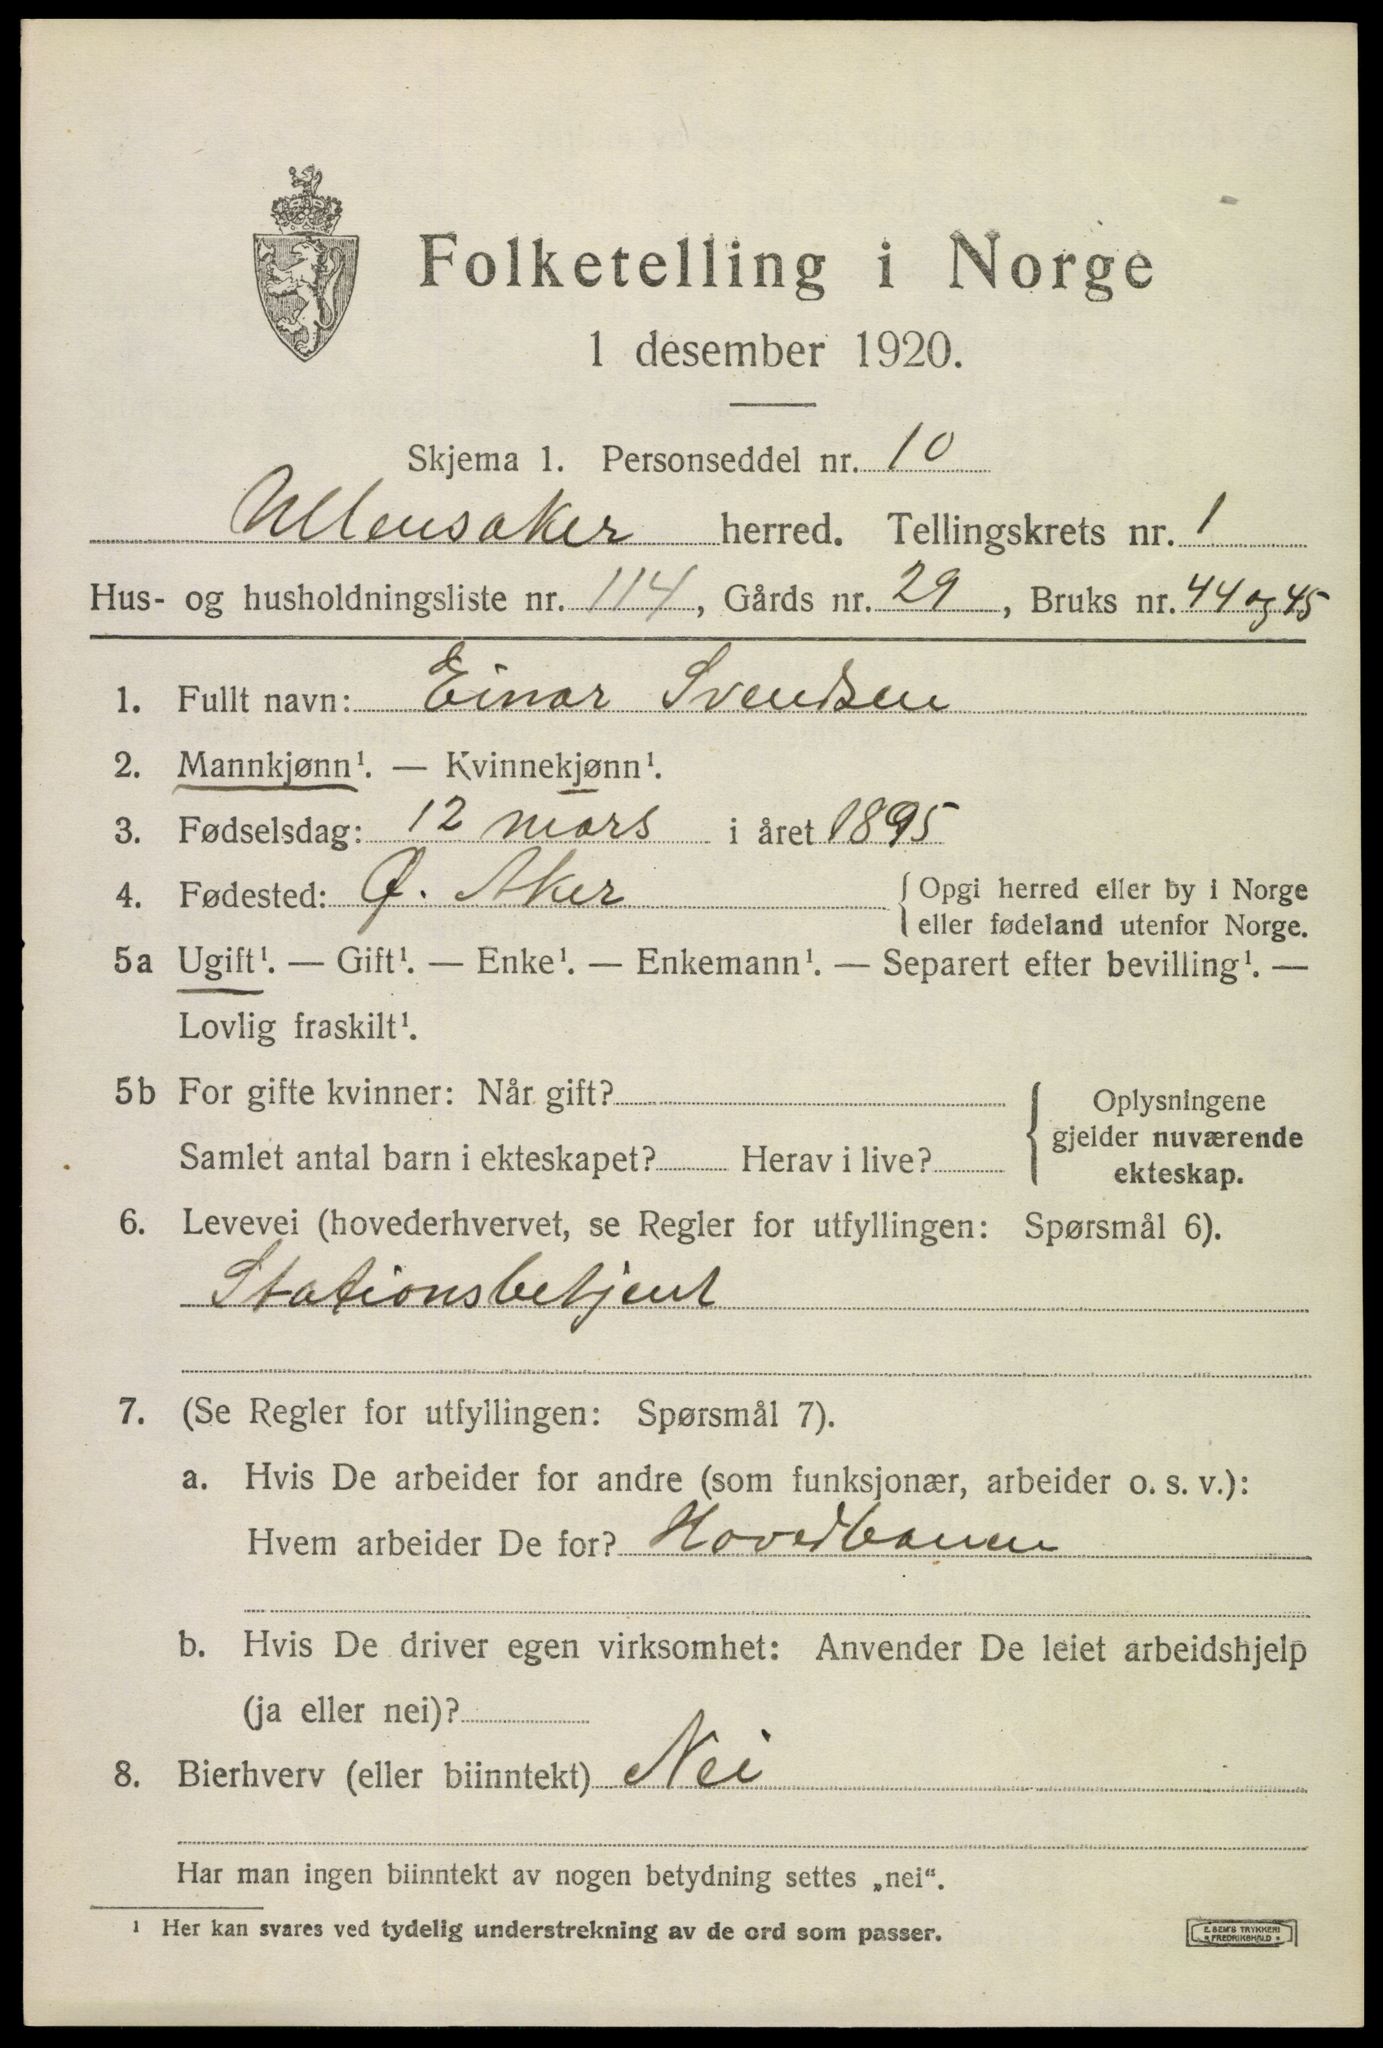 Folketelling i Norge
1 desember 1920.
Skjema 1. Personseddel nr. 10
Ullensaker herred. Tellingskrets nr. 1
Hus- og husholdningsliste nr. 114, Gårds nr. 29, Bruks nr. 44 og 45
1. Fullt navn: Einar Svendsen
2. Mannkjønn¹. — Kvinnekjønn¹.
3. Fødselsdag: 12 mars i året 1895
4. Fødested: Ø. Aker { Opgi herred eller by i Norge
eller fødeland utenfor Norge.
5a Ugift¹. — Gift¹. — Enke¹. — Enkemann¹. — Separert efter bevilling¹. —
Lovlig fraskilt¹.
5b For gifte kvinner: Når gift?
Samlet antal barn i ekteskapet? Herav i live?
{ Oplysningene
gjelder nuværende
ekteskap.
6. Levevei (hovederhvervet, se Regler for utfyllingen: Spørsmål 6).
Stationsbetjent
7. (Se Regler for utfyllingen: Spørsmål 7).
a. Hvis De arbeider for andre (som funksjonær, arbeider o. s. v.):
Hvem arbeider De for? Hovedbanen
b. Hvis De driver egen virksomhet: Anvender De leiet arbeidshjelp
(ja eller nei)?
8. Bierhverv (eller biinntekt) Nei
Har man ingen biinntekt av nogen betydning settes „nei“.
¹ Her kan svares ved tydelig understrekning av de ord som passer.
E. SEM'S TRYKKERI
• FREDRIKSHALD •